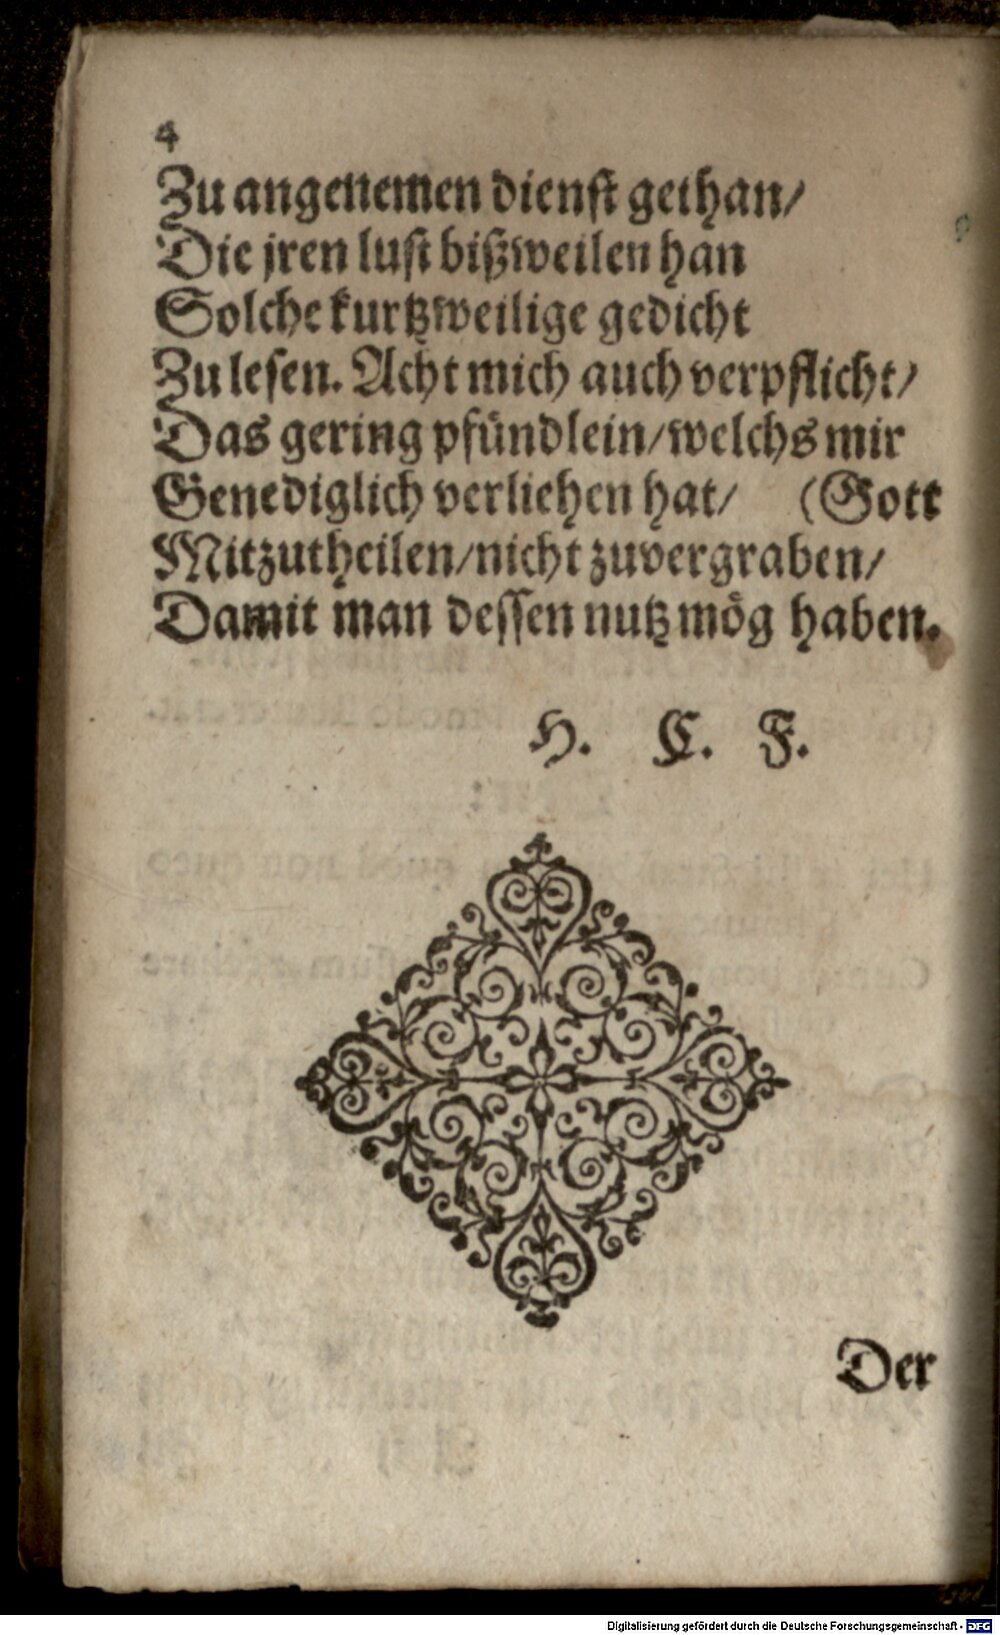 4
Zu angenemen dienst gethan/
Die jren lust bißweilen han
Solche kurtzweilige gedicht
Zu lesen. Acht mich auch verpflicht/
Das gering pfündlein/welchs mir
Genediglich verliehen hat/ (Gott
Mitzutheilen/nicht zuvergraben/
Damit man dessen nutz mög haben.
H. C. F.
Der
Digitalisierung gefördert durch die Deutsche Forschungsgemeinschaft - DFG